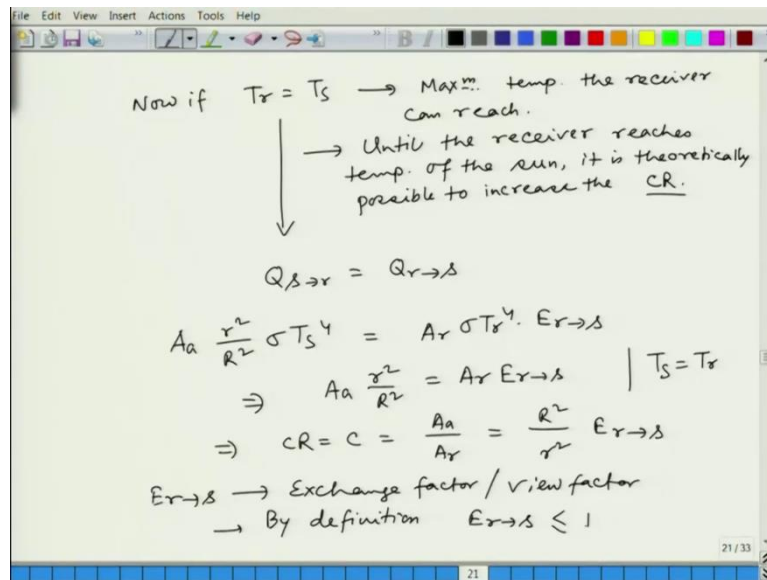 File Edit View Insert Actions Tools Help
Now if Tr = Ts → Maxm. temp. the receiver
can reach.
→ Until the receiver reaches
temp. of the sun, it is theoretically
possible to increase the CR.
Qs→r = Qr→s
Aa r²/R² σTs⁴ = Ar σTr⁴. Er→s
⇒ Aa r²/R² = Ar Er→s | Ts = Tr
⇒ CR = C = Aa/Ar = R²/r² Er→s
Er→s → Exchange factor / view factor
→ By definition Er→s ≤ 1
21 / 33
21